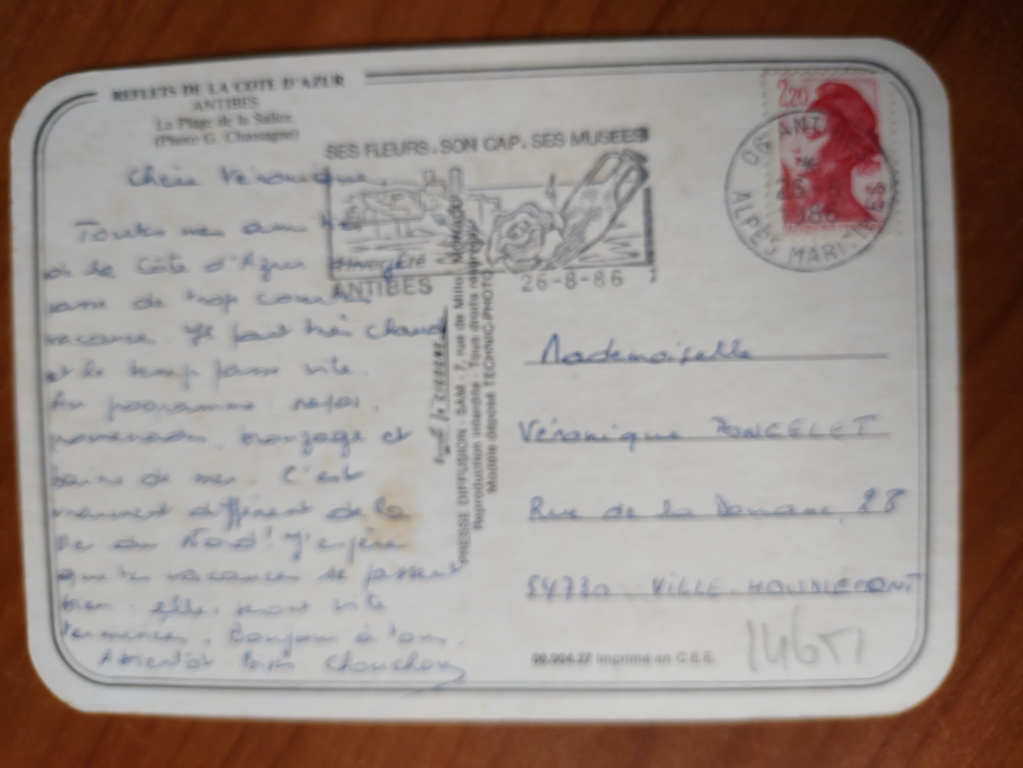 REFLETS DE LA COTE D'AZUR
ANTIBES
La Plage de la Salice
(Photo G. Chassagne)
SES FLEURS. SON CAP. SES MUSEES
Hiver Eté
ANTIBES
26-8-86
2,20
06 ANT
ALPES MARITIMES
Chère Véronique,
Toutes mes
de la Côte d'Azur
de trop courtes
vacances. Il fait très chaud
et le temps passe vite.
Au programme repos,
promenades, bronzage et
bains de mer. C'est
vraiment différent de la
Vie du Nord! J'espère
que tes vacances se passent
bien. elles seront vite
terminées. Bonjour à tous.
A bientôt
PRESSE DIFFUSION - SAM - 7, rue de Millo - MONACO
Reproduction interdite - Tous droits réservés
Modèle déposé TECHNIC-PHOTO
Mademoiselle
Véronique PONCELET
Rue de la Douane, 28
54730 VILLE-HOUDLEMONT
Imprimé en C.E.E.
14651